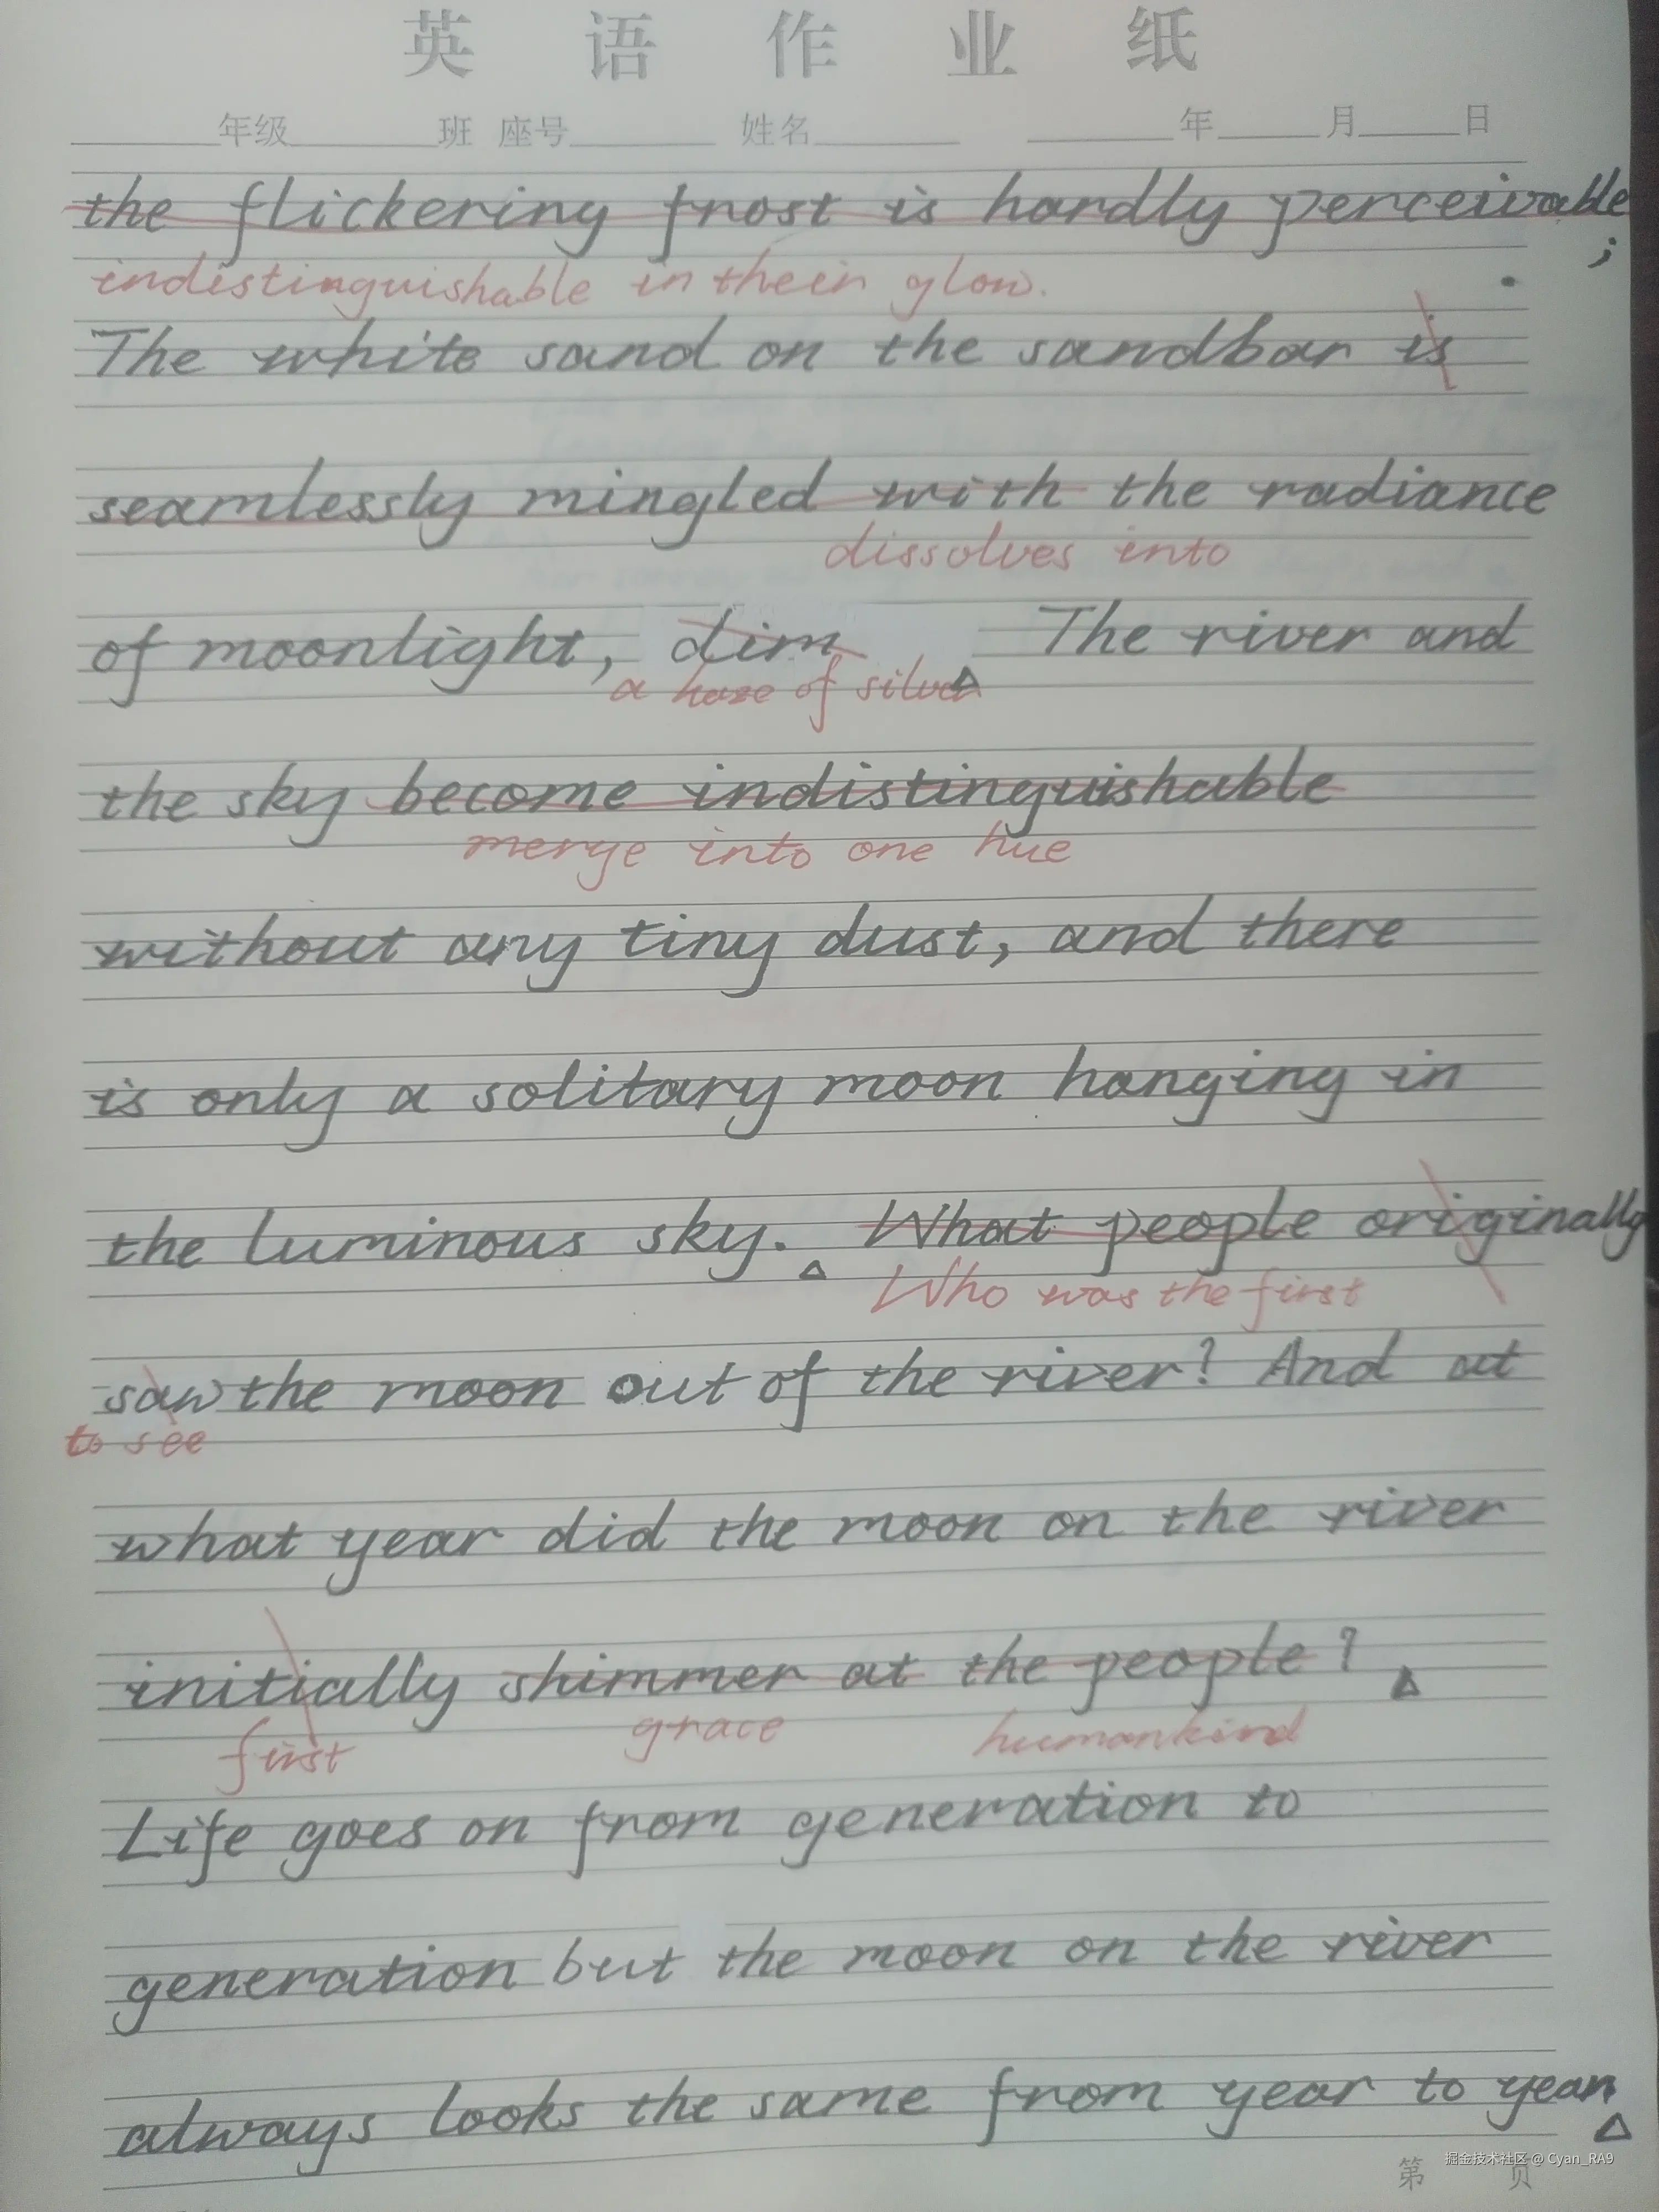 英语作业纸
年级 班 座号 姓名 年 月 日
the flickering frost is hardly perceivable;
indistinguishable in their glow.
The white sand on the sandbar is
seamlessly mingled with the radiance
dissolves into
of moonlight, dim The river and
a haze of silver
the sky become indistinguishable
merge into one hue
without any tiny dust, and there
is only a solitary moon hanging in
the luminous sky. What people originally
Who was the first
saw the moon out of the river? And at
to see
what year did the moon on the river
initially shimmer at the people?
first grace humankind
Life goes on from generation to
generation but the moon on the river
always looks the same from year to year
掘金技术社区 @ Cyan_RA9
第 页